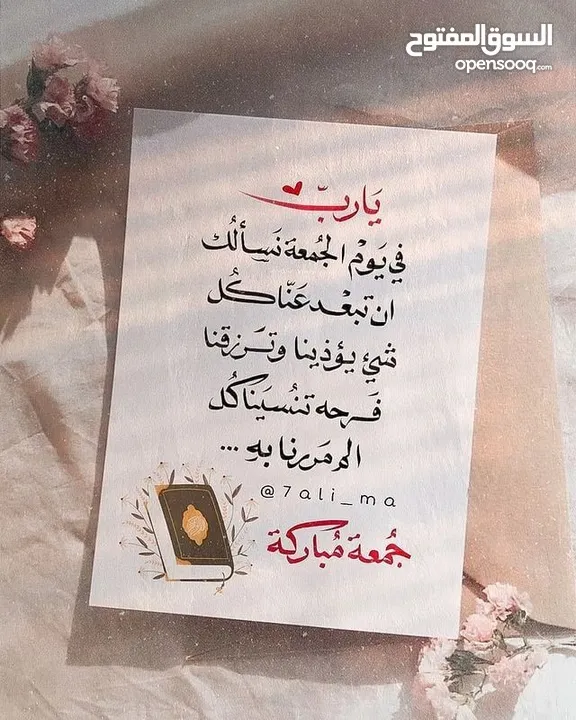 السوق المفتوح
opensooq.com
يَاربّ
في يَوْم الجُمعة نَسألُك
ان تبعْد عَنّا كُل
شيء يؤذينا وتَرزقنا
فَرحه تنُسيَنا كُل
الم مَررنا به ...
@7ali_ma
جُمعة مُباركة